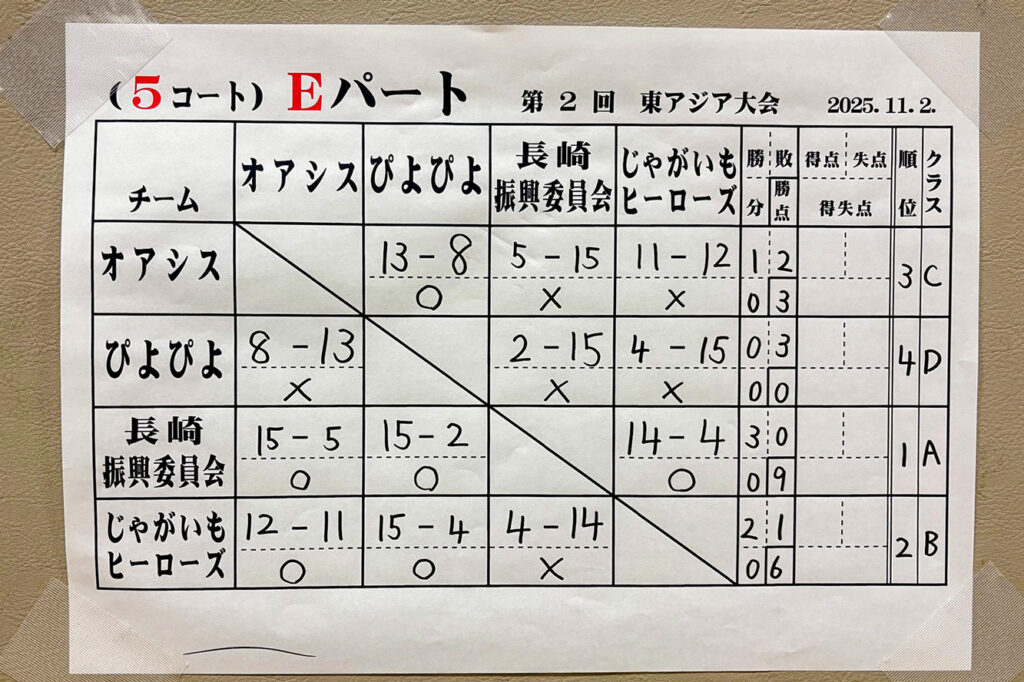 (5コート) Eパート 第2回 東アジア大会 2025.11.2.
チーム オアシス ぴよぴよ 長崎振興委員会 じゃがいもヒーローズ 勝 敗 分 勝点 得点 失点 得失点 順位 クラス
オアシス 13-8 5-15 11-12 1 2 3 C
○ × × 0 3
ぴよぴよ 8-13 2-15 4-15 0 3 4 D
× × × 0 0
長崎振興委員会 15-5 15-2 14-4 3 0 1 A
○ ○ ○ 0 9
じゃがいもヒーローズ 12-11 15-4 4-14 2 1 2 B
○ ○ × 0 6